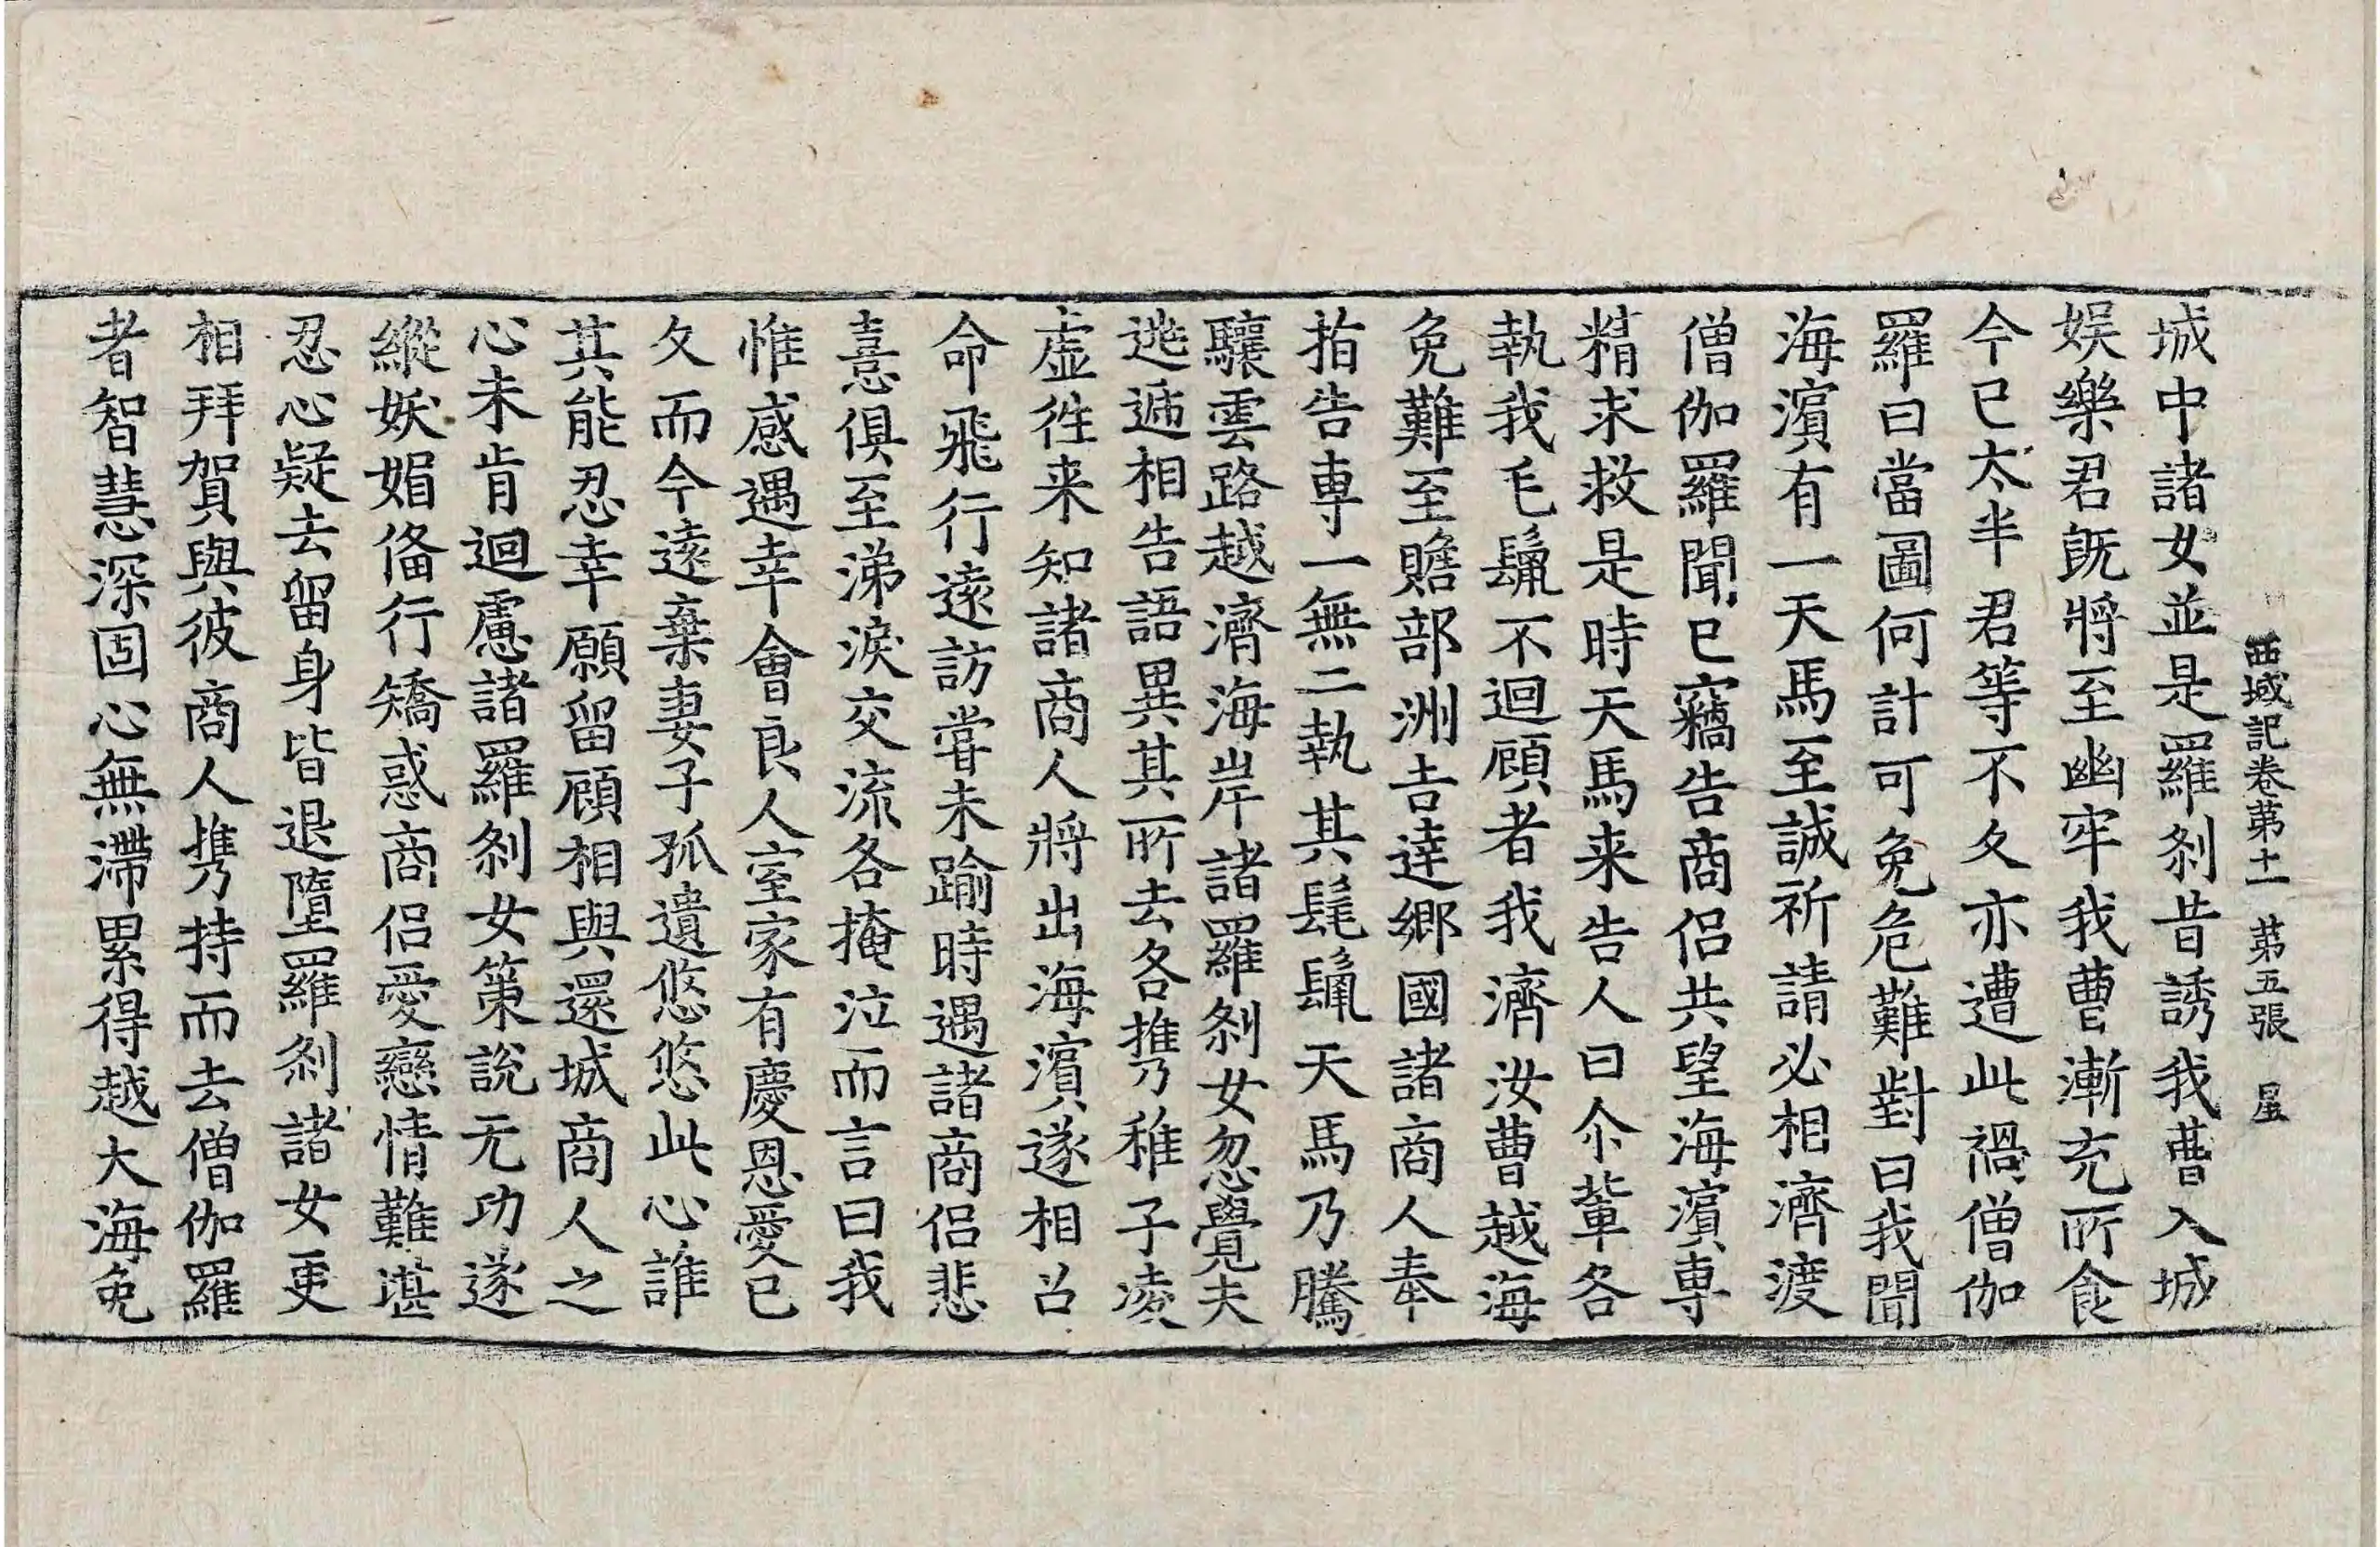 西域記卷第十一 第五張 星
城中諸女並是羅刹昔誘我曹入城
娯樂君既將至幽牢我曹漸充所食
今已太半君等不久亦遭此禍僧伽
羅曰當圖何計可免危難對曰我聞
海濱有一天馬至誠祈請必相濟渡
僧伽羅聞已竊告商侶共望海濱專
精求救是時天馬来告人曰尒輩各
執我毛鬣不迴顧者我濟汝曹越海
免難至贍部洲吉達鄉國諸商人奉
指告專一無二執其髦鬣天馬乃騰
驤雲路越濟海岸諸羅刹女忽覺夫
逃遞相告語異其所去各攜稚子凌
虛徃来知諸商人將出海濱遂相召
命飛行遠訪甞未踰時遇諸商侶悲
憙俱至涕淚交流各掩泣而言曰我
惟感遇幸會良人室家有慶恩愛已
久而今遠棄妻子孤遺悠悠此心誰
其能忍幸願留顧相與還城商人之
心未肯迴慮諸羅刹女策說无功遂
縱妖媚俻行矯惑商侶愛戀情難堪
忍心疑去留身皆退墮羅刹諸女更
相拜賀與彼商人攜持而去僧伽羅
者智慧深固心無滯累得越大海免